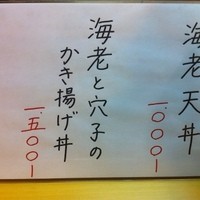 海老天丼
一、〇〇〇ー
海老と穴子の
かき揚げ丼
一、五〇〇ー